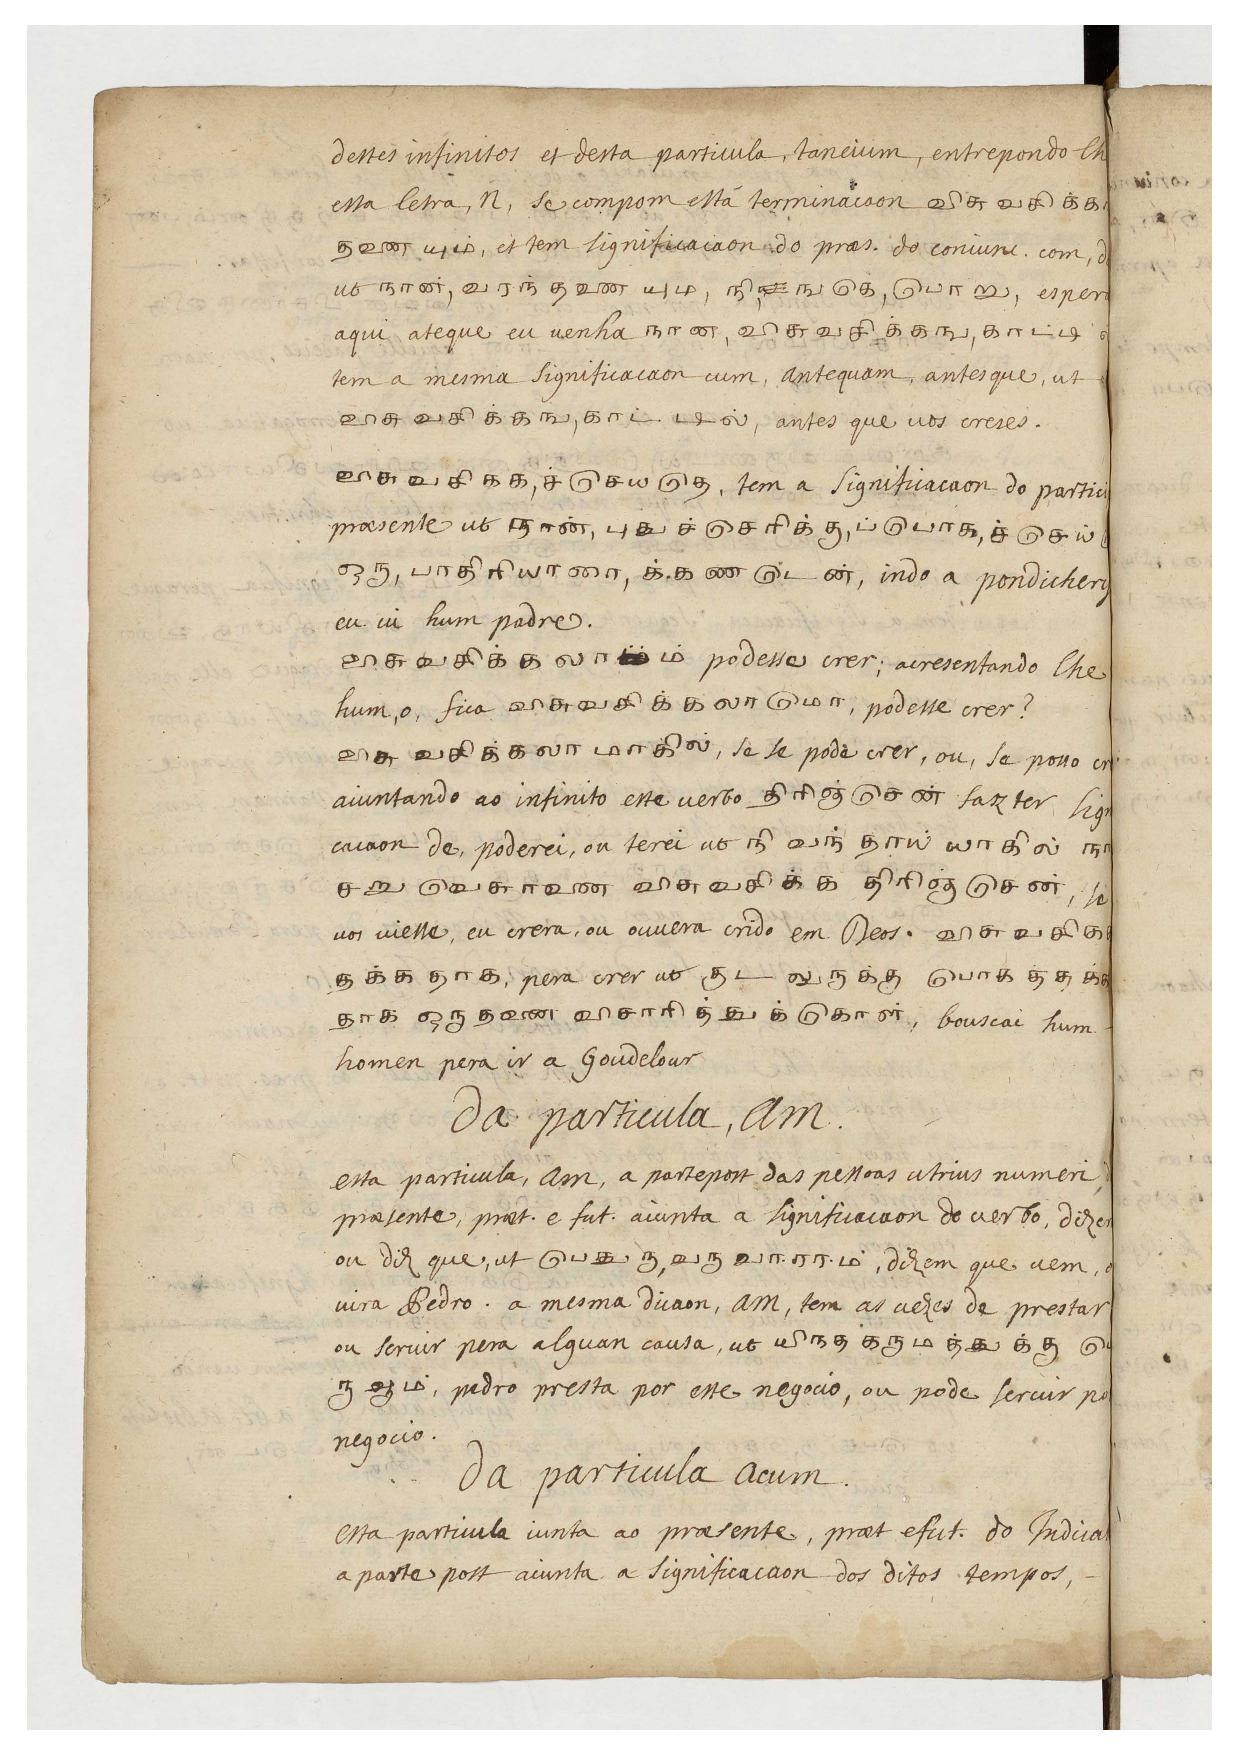 destes infinitos et desta particula, taneium, entrepondo lh
esta letra, n, se compom está terminacaon விசுவசிக்க
தவணையும், et tem significacaon do præs. do coniunc. com, d
ut நான், வரந்தவணையும, நி, பொறு, esper
aqui ateque eu uenha நான, விசுவசிக்கநு, காட்டி
tem a mesma significacaon cum, antequam, antesque, ut
விசுவசிக்கநு, காட்டில், antes que uos creses.
விசுவசிகக, ச்செயதெ, tem a significacaon do partici
præsente ut நான், புதுச்செரிக்கு, ப்பொக, ச்செய்
ஒரு, பாதிரியாரை, க்.கணடென், indo a pondichery
eu ui hum padre.
விசுவசிக்கலாம் podesse crer; acresentando lhe
hum, o, fica விசுவசிக்கலாமொ, podesse crer?
விசுவசிக்கலாமாகில், se se pode crer, ou, se posso cr
aiuntando ao infinito este uerbo திரிஞ்சென் faz ter sign
cacaon de, poderei, ou terei ut நி வந்தாய் யாகில் நா
சறுவெசுரவணை விசுவசிக்க திரிஞ்சென், se
uos uiesse, eu crera, ou ouuera crido em Deos. விசுவசிக
தக்கதாக, pera crer ut குடலுருக்கு பொகத்தக்க
தாக ஒருதவணை விசாரித்துக்கொள், bouscai hum
homen pera ir a Goudelour
Da particula, Am.
esta particula, am, a partepost das pessoas utrius numeri,
præsente, præt. e fut. aiunta a significacaon do uerbo, dizen
ou diz que, ut பெதுரு, வருவாராம், dizem que uem,
uira Pedro. a mesma dicaon, am, tem as uezes de prestar
ou seruir pera alguan causa, ut யிநதகருமத்துக்கு பெ
ருஆம், pedro presta por este negocio, ou pode seruir po
negocio.
Da particula acum.
esta particula iunta ao præsente, præt efut. do Indicat
a parte post aiunta a significacaon dos ditos tempos, -